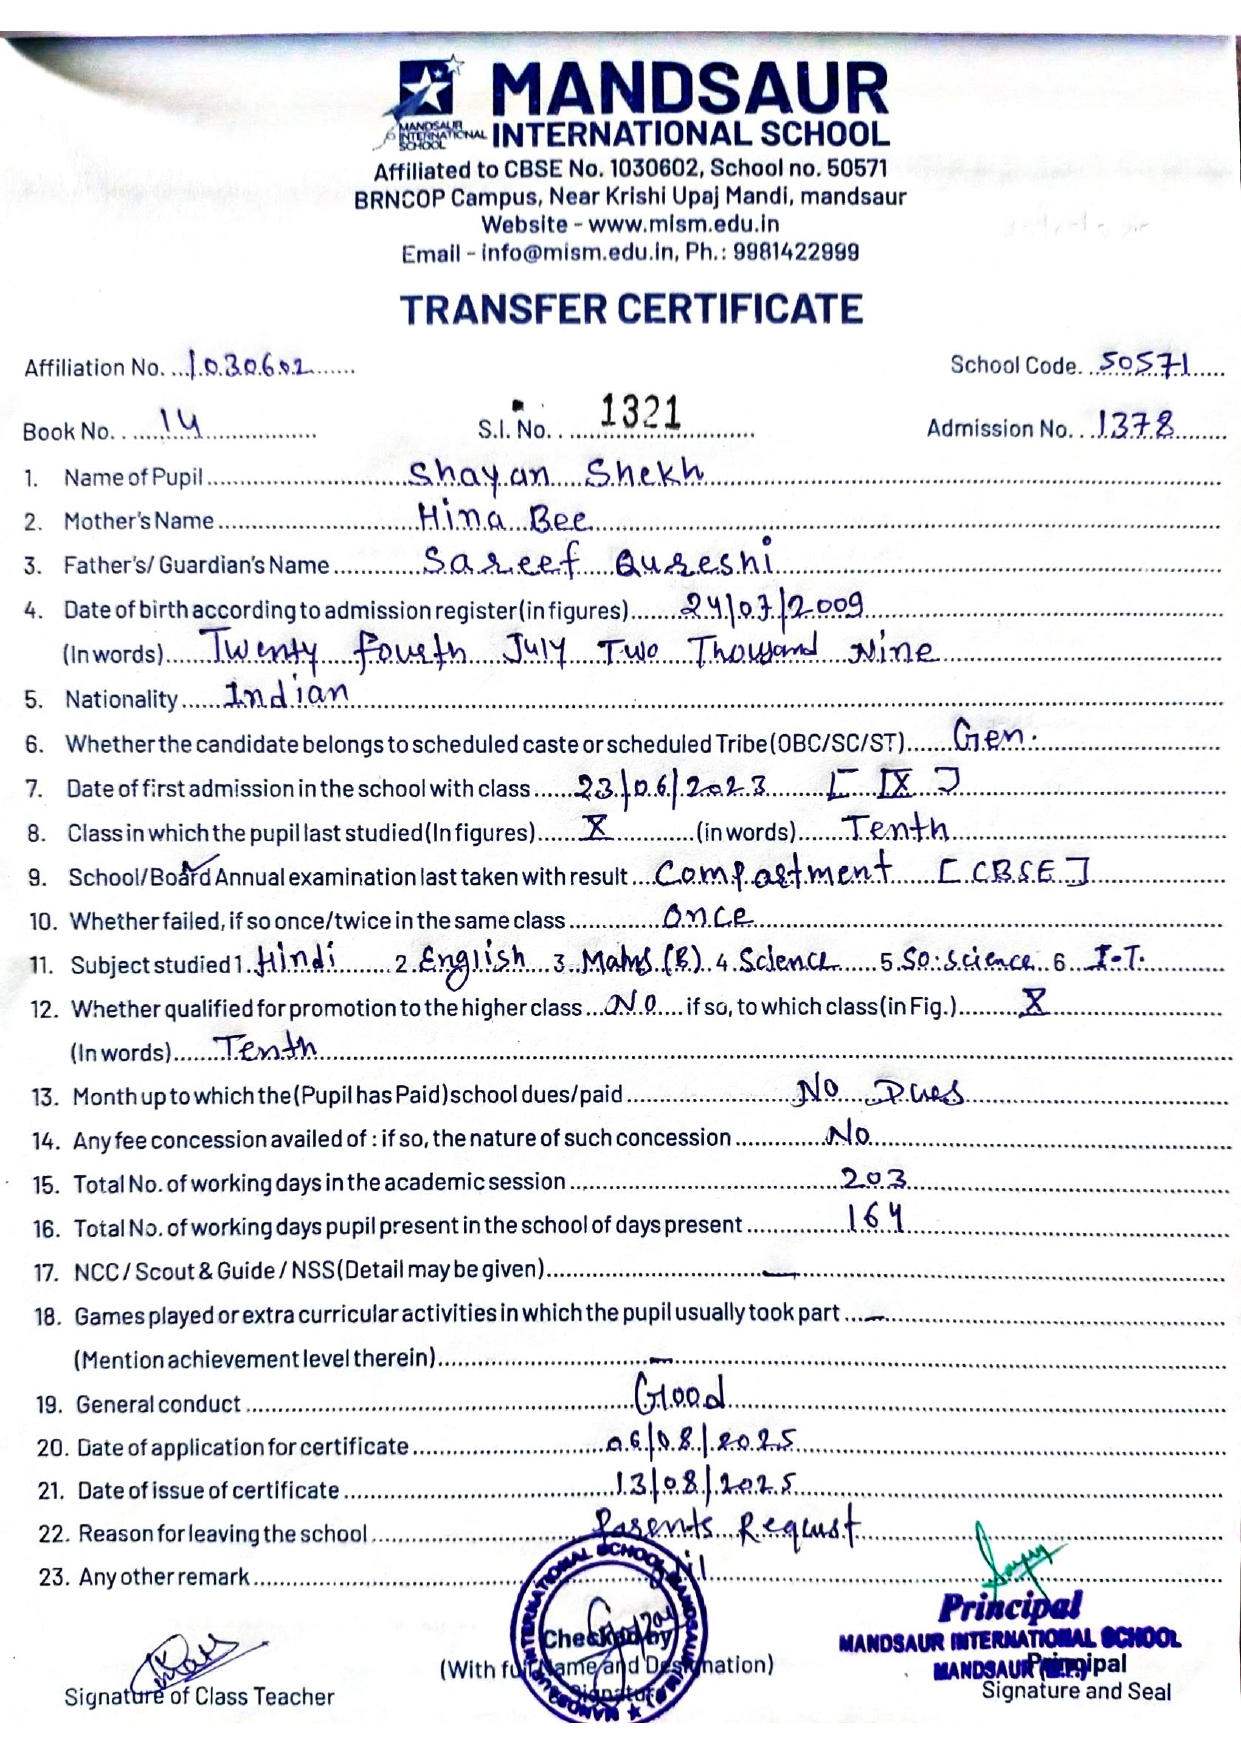 MANDSAUR
INTERNATIONAL SCHOOL
MANDSAUR INTERNATIONAL SCHOOL
Affiliated to CBSE No. 1030602, School no. 50571
BRNCOP Campus, Near Krishi Upaj Mandi, mandsaur
Website - www.mism.edu.in
Email - info@mism.edu.in, Ph.: 9981422999
TRANSFER CERTIFICATE
Affiliation No. 1030602 School Code. 50571
Book No. 14 S.I. No. 1321 Admission No. 1378
1. Name of Pupil Shayan Shekh
2. Mother's Name Hina Bee
3. Father's/ Guardian's Name Sareef Qureshi
4. Date of birth according to admission register (in figures) 24/07/2009
(In words) Twenty fourth July Two Thousand Nine
5. Nationality Indian
6. Whether the candidate belongs to scheduled caste or scheduled Tribe (OBC/SC/ST) Gen.
7. Date of first admission in the school with class 23/06/2023 [IX]
8. Class in which the pupil last studied (In figures) X (in words) Tenth
9. School/Board Annual examination last taken with result Compartment [CBSE]
10. Whether failed, if so once/twice in the same class once
11. Subject studied 1. Hindi 2. English 3 Maths (B) 4 Science 5 So. Science 6 I.T.
12. Whether qualified for promotion to the higher class No if so, to which class (in Fig.) X
(In words) Tenth
13. Month up to which the (Pupil has Paid) school dues/paid No Dues
14. Any fee concession availed of : if so, the nature of such concession No
15. Total No. of working days in the academic session 203
16. Total No. of working days pupil present in the school of days present 164
17. NCC / Scout & Guide / NSS (Detail may be given) —
18. Games played or extra curricular activities in which the pupil usually took part —
(Mention achievement level therein) —
19. General conduct Good
20. Date of application for certificate 06/08/2025
21. Date of issue of certificate 13/08/2025
22. Reason for leaving the school Parents Requst
23. Any other remark Nil
Principal
MANDSAUR INTERNATIONAL SCHOOL
MANDSAUR (M.P.)
Checked by
(With full Name and Designation)
Signature
Principal
Signature of Class Teacher
Signature and Seal